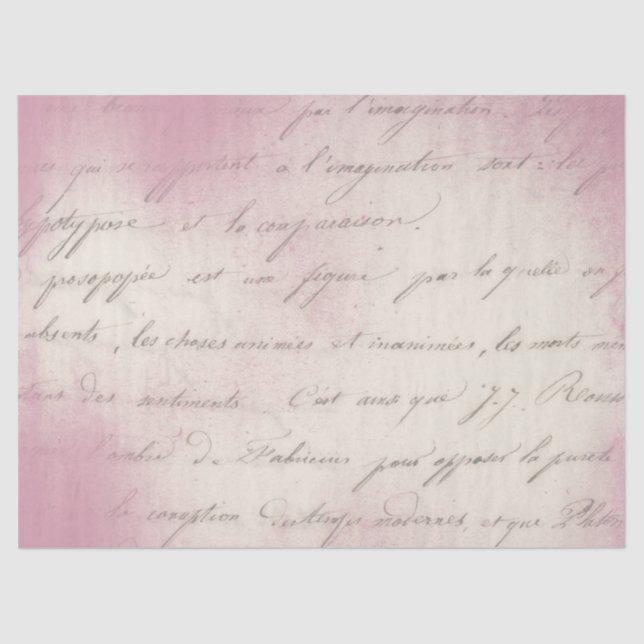 par l'imagination. Les
qui se rapportent à l'imagination sont : la
ypotypose et la comparaison.
prosopopée est une figure par la quelle on f
absents, les choses animées et inanimées, les morts mem
des sentiments. C'est ainsi que J. J. Rouss
l'ombre de Fabricius pour opposer la pureté
la coruption des temps modernes, et que Platon